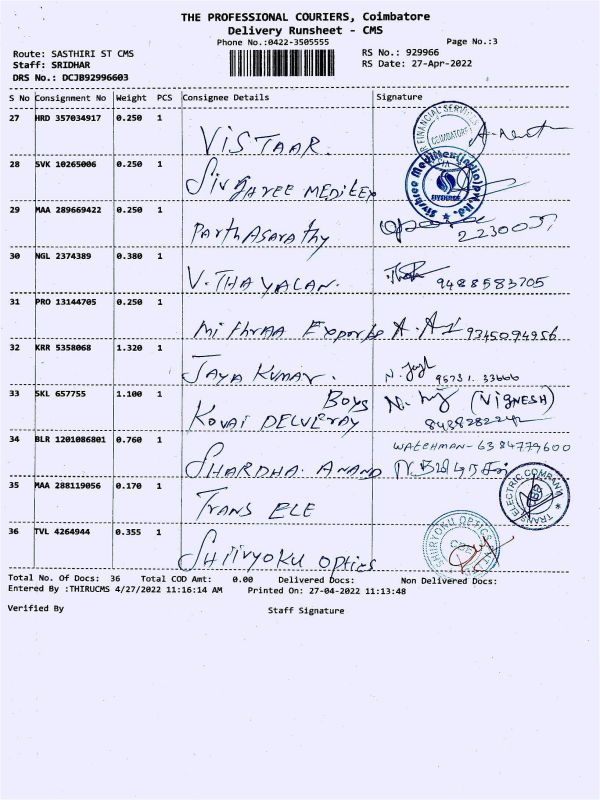 THE PROFESSIONAL COURIERS, Coimbatore
Delivery Runsheet - CMS
Phone No.:0422-3505555 Page No.:3
Route: SASTHIRI ST CMS RS No.: 929966
Staff: SRIDHAR RS Date: 27-Apr-2022
DRS No.: DCJB92996603
S No Consignment No Weight PCS Consignee Details Signature
27 HRD 357034917 0.250 1 VISTAAR. FINANCIAL SERVICES COIMBATORE
28 SVK 10265006 0.250 1 Sivashree MEDITEX Sivshree Meditex (India) Pvt. Ltd.
29 MAA 289669422 0.250 1 PARthASArathy
30 NGL 2374389 0.380 1 V. THAYALAN. 9488583705
31 PRO 13144705 0.250 1 Mithraa Exports 9345094956
32 KRR 5358068 1.320 1 JAYA KUMAR. 95731. 33666
33 SKL 657755 1.100 1 KOVAI DELVERAY Boys (VIGNESH)
34 BLR 1201086801 0.760 1 SHARDHA. ANAND WATCHMAN- 6384779600
35 MAA 288119056 0.170 1 TRANS ELE TRANS ELECTRIC COMPANY
36 TVL 4264944 0.355 1 SHIIVYOKU Optics SHIIRYOKU OPTICS CBE
Total No. Of Docs: 36 Total COD Amt: 0.00 Delivered Docs: Non Delivered Docs:
Entered By :THIRUCMS 4/27/2022 11:16:14 AM Printed On: 27-04-2022 11:13:48
Verified By Staff Signature